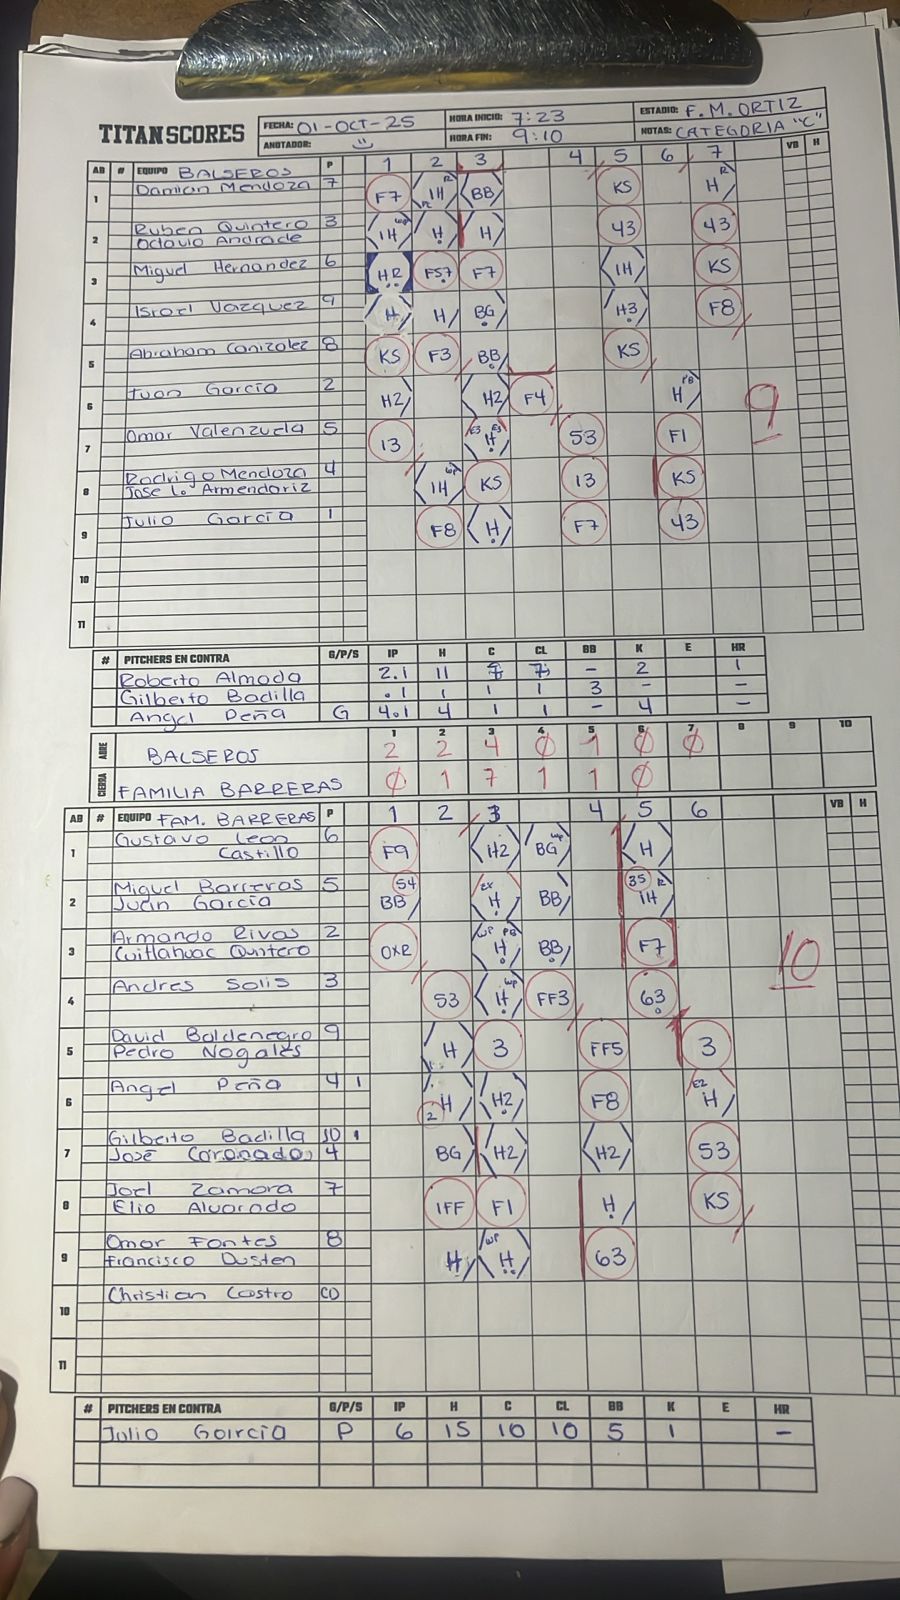 TITANSCORES
FECHA: 01-OCT-25 HORA INICIO: 7:23 ESTADIO: F.M. ORTIZ
ANOTADOR: HORA FIN: 9:10 NOTAS: CATEGORIA "C"
AB # EQUIPO BALSEROS P 1 2 3 4 5 6 7 VB H
1 Damian Mendoza 7 F7 1H R R BB KS H R
2 Ruben Quintero 3 1H wp H H 43 43
Octavio Andrade
3 Miguel Hernandez 6 HR FS7 F7 1H KS
4 Israel Vazquez 9 H H BG H3 F8
5 Abraham Canizalez 8 KS F3 BB KS
6 Juan Garcia 2 H2 H2 F4 H PB
7 Omar Valenzuela 5 13 E3 E3 H 53 F1
9
8 Rodrigo Mendoza 4 1H wp KS 13 KS
Jose L. Armendariz
9 Julio Garcia 1 F8 H F7 43
10
11
# PITCHERS EN CONTRA G/P/S IP H C CL BB K E HR
Roberto Almada 2.1 11 7 7 - 2 1
Gilberto Badilla .1 1 1 1 3 - -
Angel Peña G 4.1 4 1 1 - 4 -
1 2 3 4 5 6 7 8 9 10
ABRE BALSEROS 2 2 4 Ø 1 Ø Ø
CIERRA FAMILIA BARRERAS Ø 1 7 1 1 Ø
AB # EQUIPO FAM. BARRERAS P 1 2 3 4 5 6 VB H
1 Gustavo Leon 6 F9 H2 BG wp H
Castillo
2 Miguel Barreras 5 54 BB EX H BB 35 R 1H
Juan Garcia
3 Armando Rivas 2 OXR WP PB H BB F7
Cuitlahuac Quintero
10
4 Andres Solis 3 53 H wp FF3 63
5 David Baldenegro 9 H 3 FF5 3
Pedro Nogales
6 Angel Peña 4 1 2 H H2 F8 E2 H
7 Gilberto Badilla 10 1 BG H2 H2 53
José Coronado 4
8 Joel Zamora 7 IFF F1 H KS
Elio Alvarado
9 Omar Fontes 8 H WP H 63
Francisco Dusten
10 Christian Castro CO
11
# PITCHERS EN CONTRA G/P/S IP H C CL BB K E HR
Julio Garcia P 6 15 10 10 5 1 -